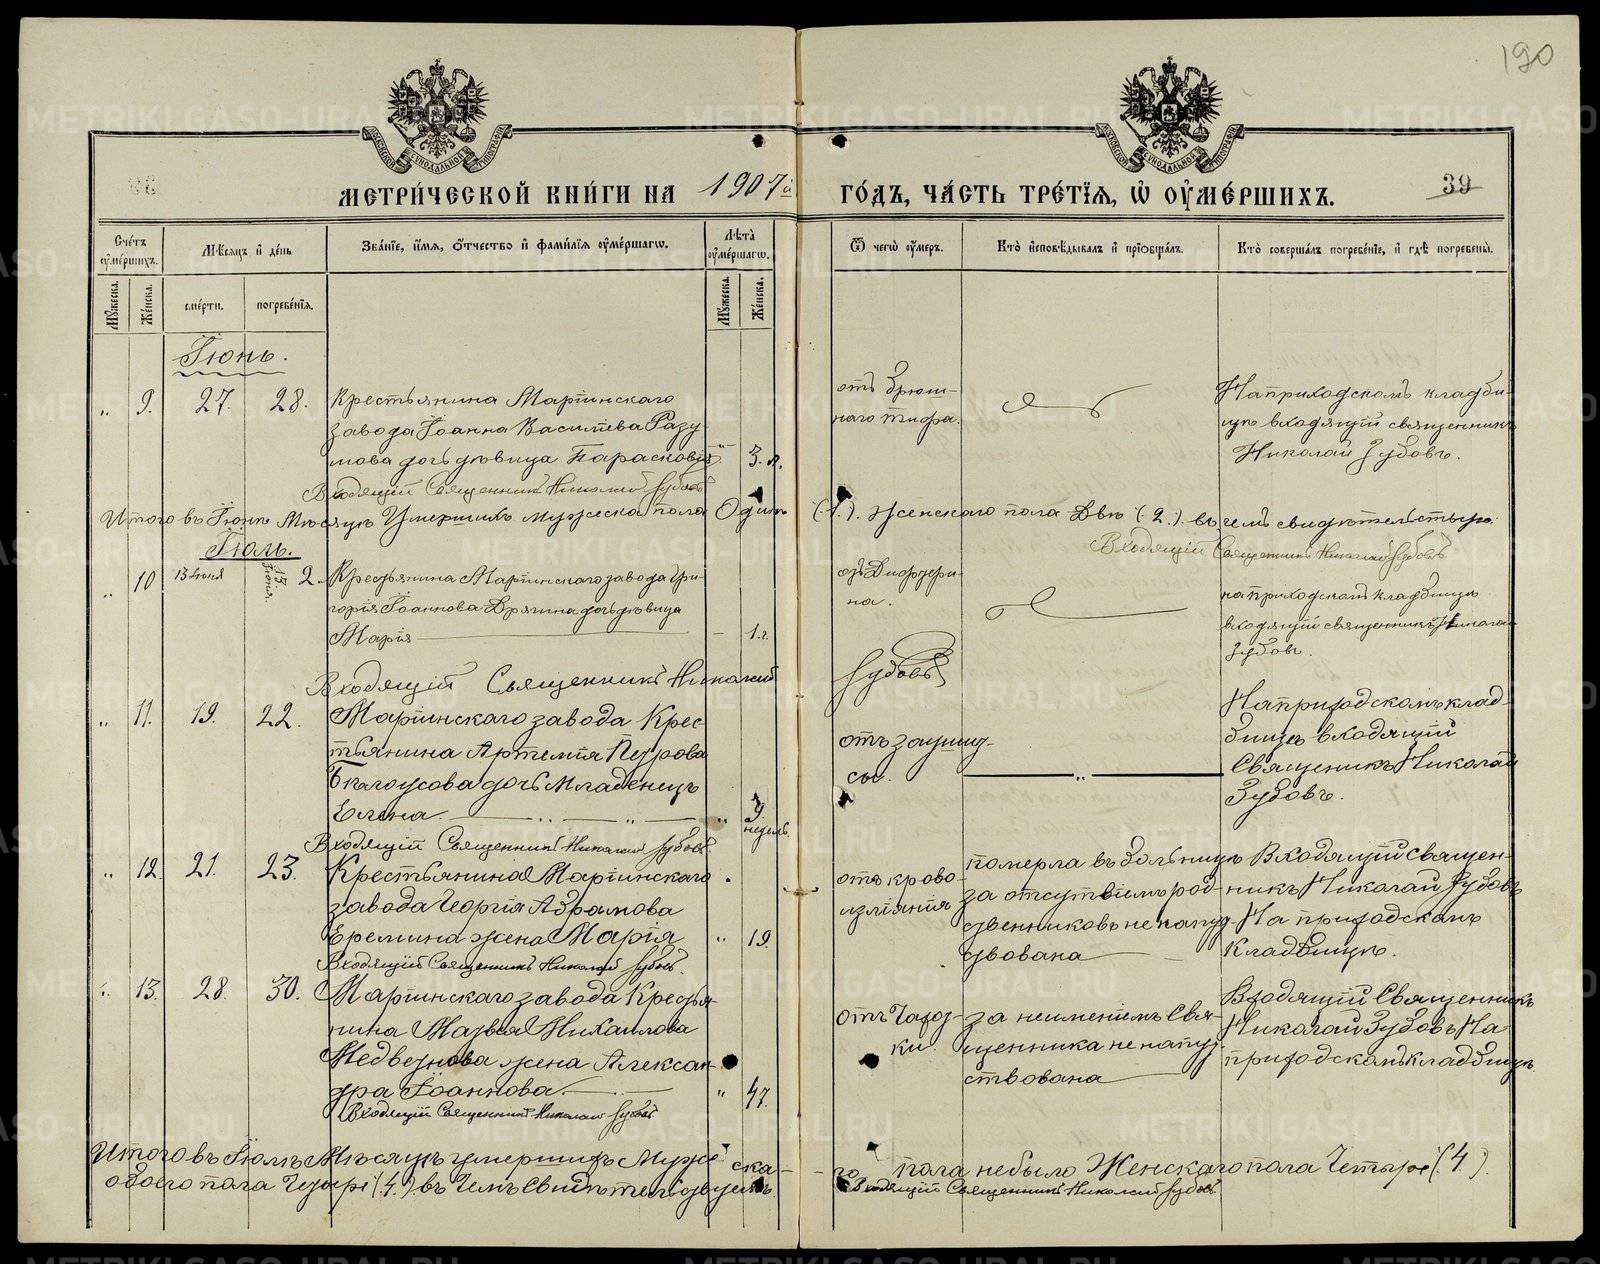 190
МЕТРИ́ЧЕСКОЙ КНИ́ГИ НА 1907й ГО́ДЪ, ЧА́СТЬ ТРЕ́ТЇѦ, Ѡ҆ ОУ҆МЕ́РШИХЪ.
39
Сче́тъ оу҆ме́ршихъ.
Мѣ́сяцъ и҆ де́нь
Зва́нїе, и҆́мѧ, ѻ҆́тчество и҆ фами́лїѧ оу҆ме́ршагѡ.
Лѣ́та оу҆ме́ршагѡ.
Ѿ чегѡ̀ оу҆́меръ.
Кто̀ и҆сповѣ́дывалъ и҆ прїѻбща́лъ.
Кто̀ соверша́лъ погребе́нїе, и҆ гдѣ̀ погребены̀.
Мꙋ́жеска.
Же́нска.
сме́рти.
погребе́нїѧ.
Мꙋ́жеска.
Же́нска.
Іюнь.
„ 9. 27. 28.
Крестьянина Маріинскаго
завода Іоанна Василіева Разу
мова дочь дѣвица Парасковія
„ 3. л.
отъ брюш-
наго тифа.
На приходскомъ кладби-
щѣ входящій священникъ
Николай Зубовъ.
Входящій Священникъ Николай Зубовъ
Итого въ Іюнѣ Мѣсяцѣ Умершихъ мужеска пола Одинъ (1.). Женскаго пола Двѣ (2.). въ чемъ свидѣтельствую
Входящій Священникъ Николай Зубовъ
Іюль.
„ 10 13 Іюня 15 Іюня. 2.
Крестьянина Маріинскаго завода Гри-
горія Іоаннова Дрягина дочь дѣвица
Марія
1.г.
отъ Дифтери-
на.
на приходскомъ кладбищѣ
входящій священникъ Николай
Зубовъ.
Входящій Священникъ Николай Зубовъ
„ 11. 19. 22.
Маріинскаго завода Крес
тьянина Артемія Петрова
Бѣлоусова дочь Младенецъ
Елена.
„ 3. недѣль.
отъ
На приходскомъ клад-
бищѣ входящій
Священикъ Николай
Зубовъ.
Входящій Священникъ Николай Зубовъ.
„ 12. 21. 23.
Крестьянина Маріинскаго
завода Георгія Абрамова
Еремина жена Марія
„ 19.
отъ крово-
изліянія
померла въ больницѣ
за отсутствіемъ род-
ственниковъ не напут-
ствована
Входящій священ-
никъ Николай Зубовъ
На приходскомъ
кладбищѣ.
Входящій Священникъ Николай Зубовъ.
„ 13. 28. 30.
Маріинскаго завода Крестья-
нина Матвея Михаилова
Медведнова жена Алексан-
дра Іоаннова.
„ 47.
отъ Чахот-
ки.
за неименіемъ Свя-
щенника не напут-
ствована
Входящій Священникъ
Николай Зубовъ На
приходскомъ кладбищѣ
Входящій Священникъ Николай Зубовъ.
Итого въ Іюлѣ Мѣсяцѣ умершихъ Мужеска-го пола небыло Женскаго пола Четыре (4.).
обоего пола Четыре (4.) въ Чемъ Свидѣтельствуемъ. Входящій Священникъ Николай Зубовъ
METRIKI.GASO-URAL.RU